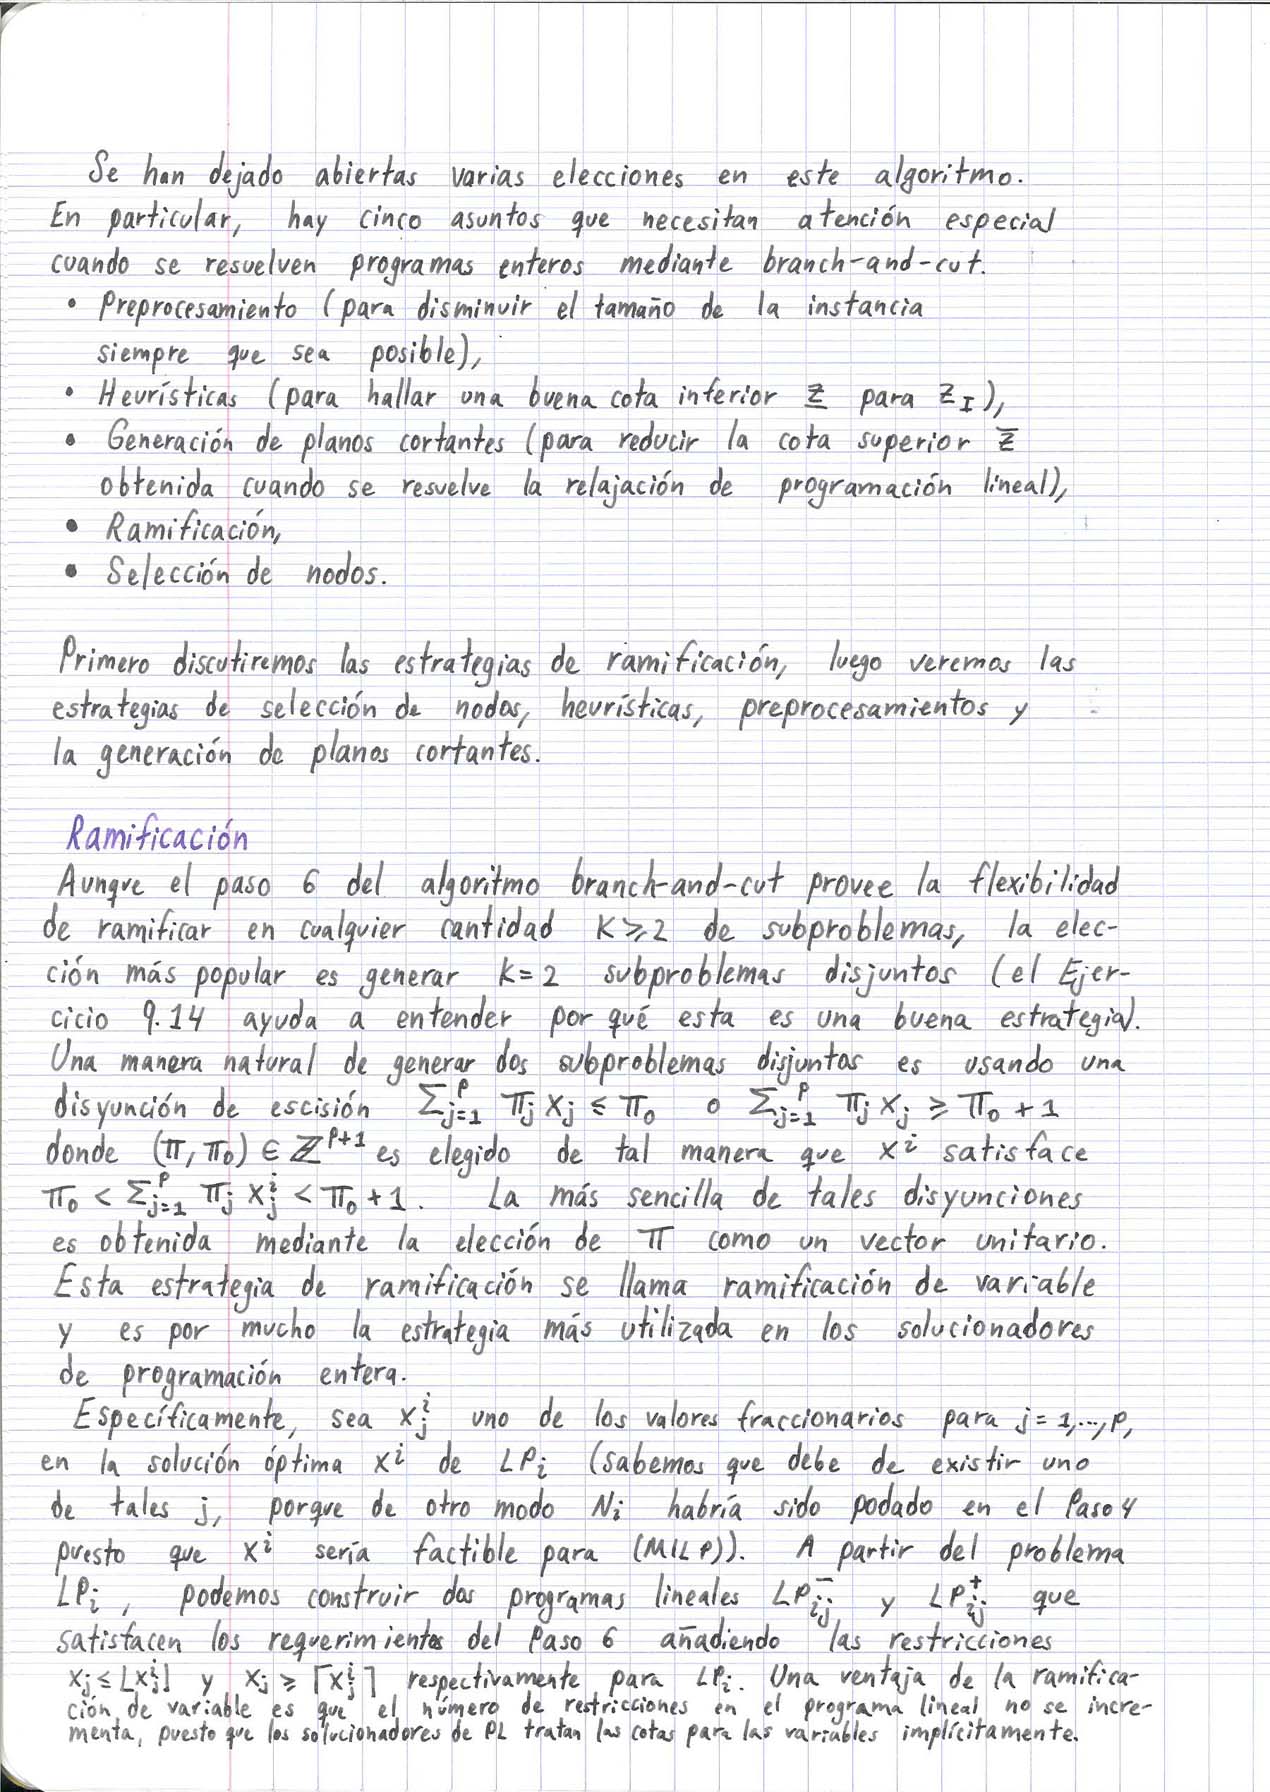 Se han dejado abiertas varias elecciones en este algoritmo.
En particular, hay cinco asuntos que necesitan atención especial
cuando se resuelven programas enteros mediante branch-and-cut.
• Preprocesamiento (para disminuir el tamaño de la instancia
siempre que sea posible),
• Heurísticas (para hallar una buena cota inferior z̲ para z_I),
• Generación de planos cortantes (para reducir la cota superior z̄
obtenida cuando se resuelve la relajación de programación lineal),
• Ramificación,
• Selección de nodos.
Primero discutiremos las estrategias de ramificación, luego veremos las
estrategias de selección de nodos, heurísticas, preprocesamientos y
la generación de planos cortantes.
Ramificación
Aunque el paso 6 del algoritmo branch-and-cut provee la flexibilidad
de ramificar en cualquier cantidad K ⩾ 2 de subproblemas, la elec-
ción más popular es generar k = 2 subproblemas disjuntos (el Ejer-
cicio 9.14 ayuda a entender por qué esta es una buena estrategia).
Una manera natural de generar dos subproblemas disjuntos es usando una
disyunción de escisión ∑_{j=1}^{p} π_j x_j ≤ π_0 o ∑_{j=1}^{p} π_j x_j ⩾ π_0 + 1
donde (π, π_0) ∈ ℤ^{p+1} es elegido de tal manera que x^i satisface
π_0 < ∑_{j=1}^{p} π_j x_j^i < π_0 + 1. La más sencilla de tales disyunciones
es obtenida mediante la elección de π como un vector unitario.
Esta estrategia de ramificación se llama ramificación de variable
y es por mucho la estrategia más utilizada en los solucionadores
de programación entera.
Específicamente, sea x_j^i uno de los valores fraccionarios para j = 1,..., p,
en la solución óptima x^i de LP_i (sabemos que debe de existir uno
de tales j, porque de otro modo N_i habría sido podado en el Paso 4
puesto que x^i sería factible para (MILP)). A partir del problema
LP_i, podemos construir dos programas lineales LP_{ij}^- y LP_{ij}^+ que
satisfacen los requerimientos del Paso 6 añadiendo las restricciones
x_j ≤ ⌊x_j^i⌋ y x_j ⩾ ⌈x_j^i⌉ respectivamente para LP_i. Una ventaja de la ramifica-
ción de variable es que el número de restricciones en el programa lineal no se incre-
menta, puesto que los solucionadores de PL tratan las cotas para las variables implícitamente.